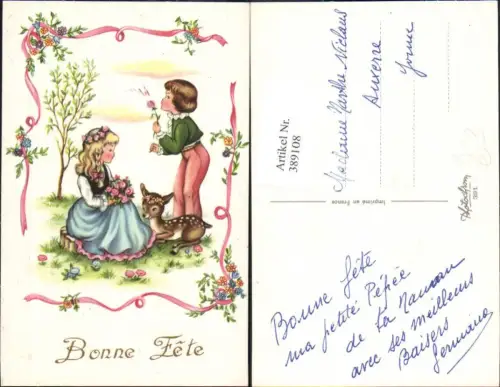 Bonne Fête
Madame Marthe Niclaus
Auxerre
Yonne
Artikel Nr.
389108
Imprimé en France
Bonne fête
ma petite Pépée
de ta Maman
avec ses meilleurs
Baisers
Germaine